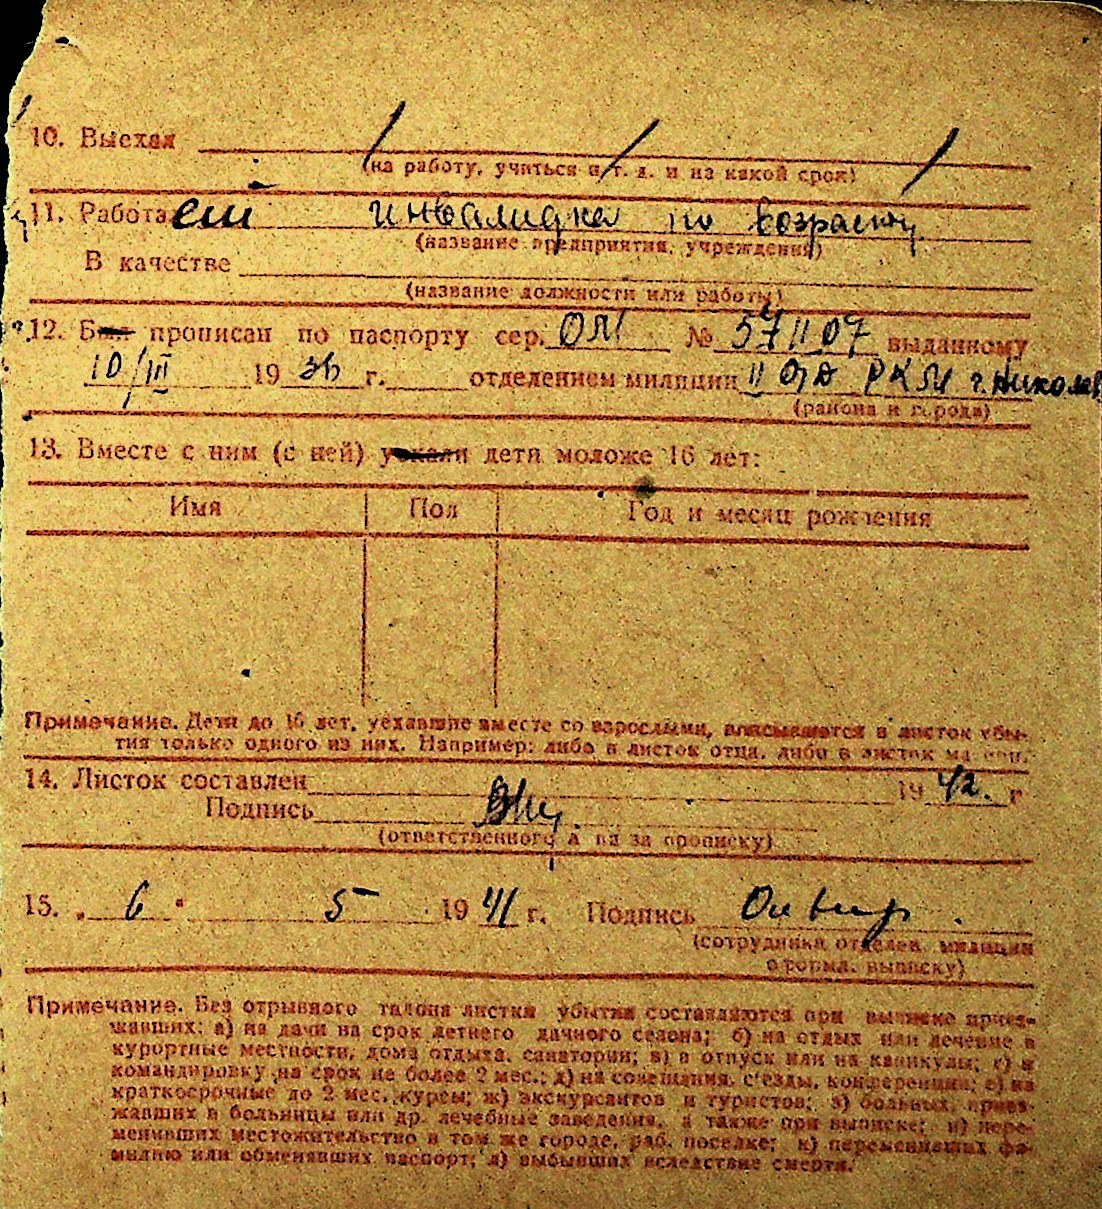 10. Выехал
(на работу, учиться и т. д. и на какой срок)
11. Работает инвалидка по возрасту
(название предприятия, учреждения)
В качестве
(название должности или работы)
12. Был прописан по паспорту сер. ОЯ № 571107 выданному
10/III 1936 г. отделением милиции II РКМ г. Николаев
(района и города)
13. Вместе с ним (с ней) уехали дети моложе 16 лет:
Имя Пол Год и месяц рождения
Примечание. Дети до 16 лет, уехавшие вместе со взрослыми, вписываются в листок убы-
тия только одного из них. Например: либо в листок отца, либо в листок матери.
14. Листок составлен 1942. г
Подпись
(ответственного за прописку)
15. „6" 5 1941 г. Подпись
(сотрудника отделен. милиции
оформл. выписку)
Примечание. Без отрывного талона листки убытия составляются при выписке приез-
жавших: а) на дачи на срок летнего дачного сезона; б) на отдых или лечение в
курортные местности, дома отдыха, санатории; в) в отпуск или на каникулы; г) в
командировку на срок не более 2 мес.; д) на совещания, с'езды, конференции; е) на
краткосрочные до 2 мес. курсы; ж) экскурсантов и туристов; з) больных, приез-
жавших в больницы или др. лечебные заведения, а также при выписке; и) пере-
менивших местожительство в том же городе, раб. поселке; к) переменивших фа-
милию или обменявших паспорт; л) выбывших вследствие смерти.